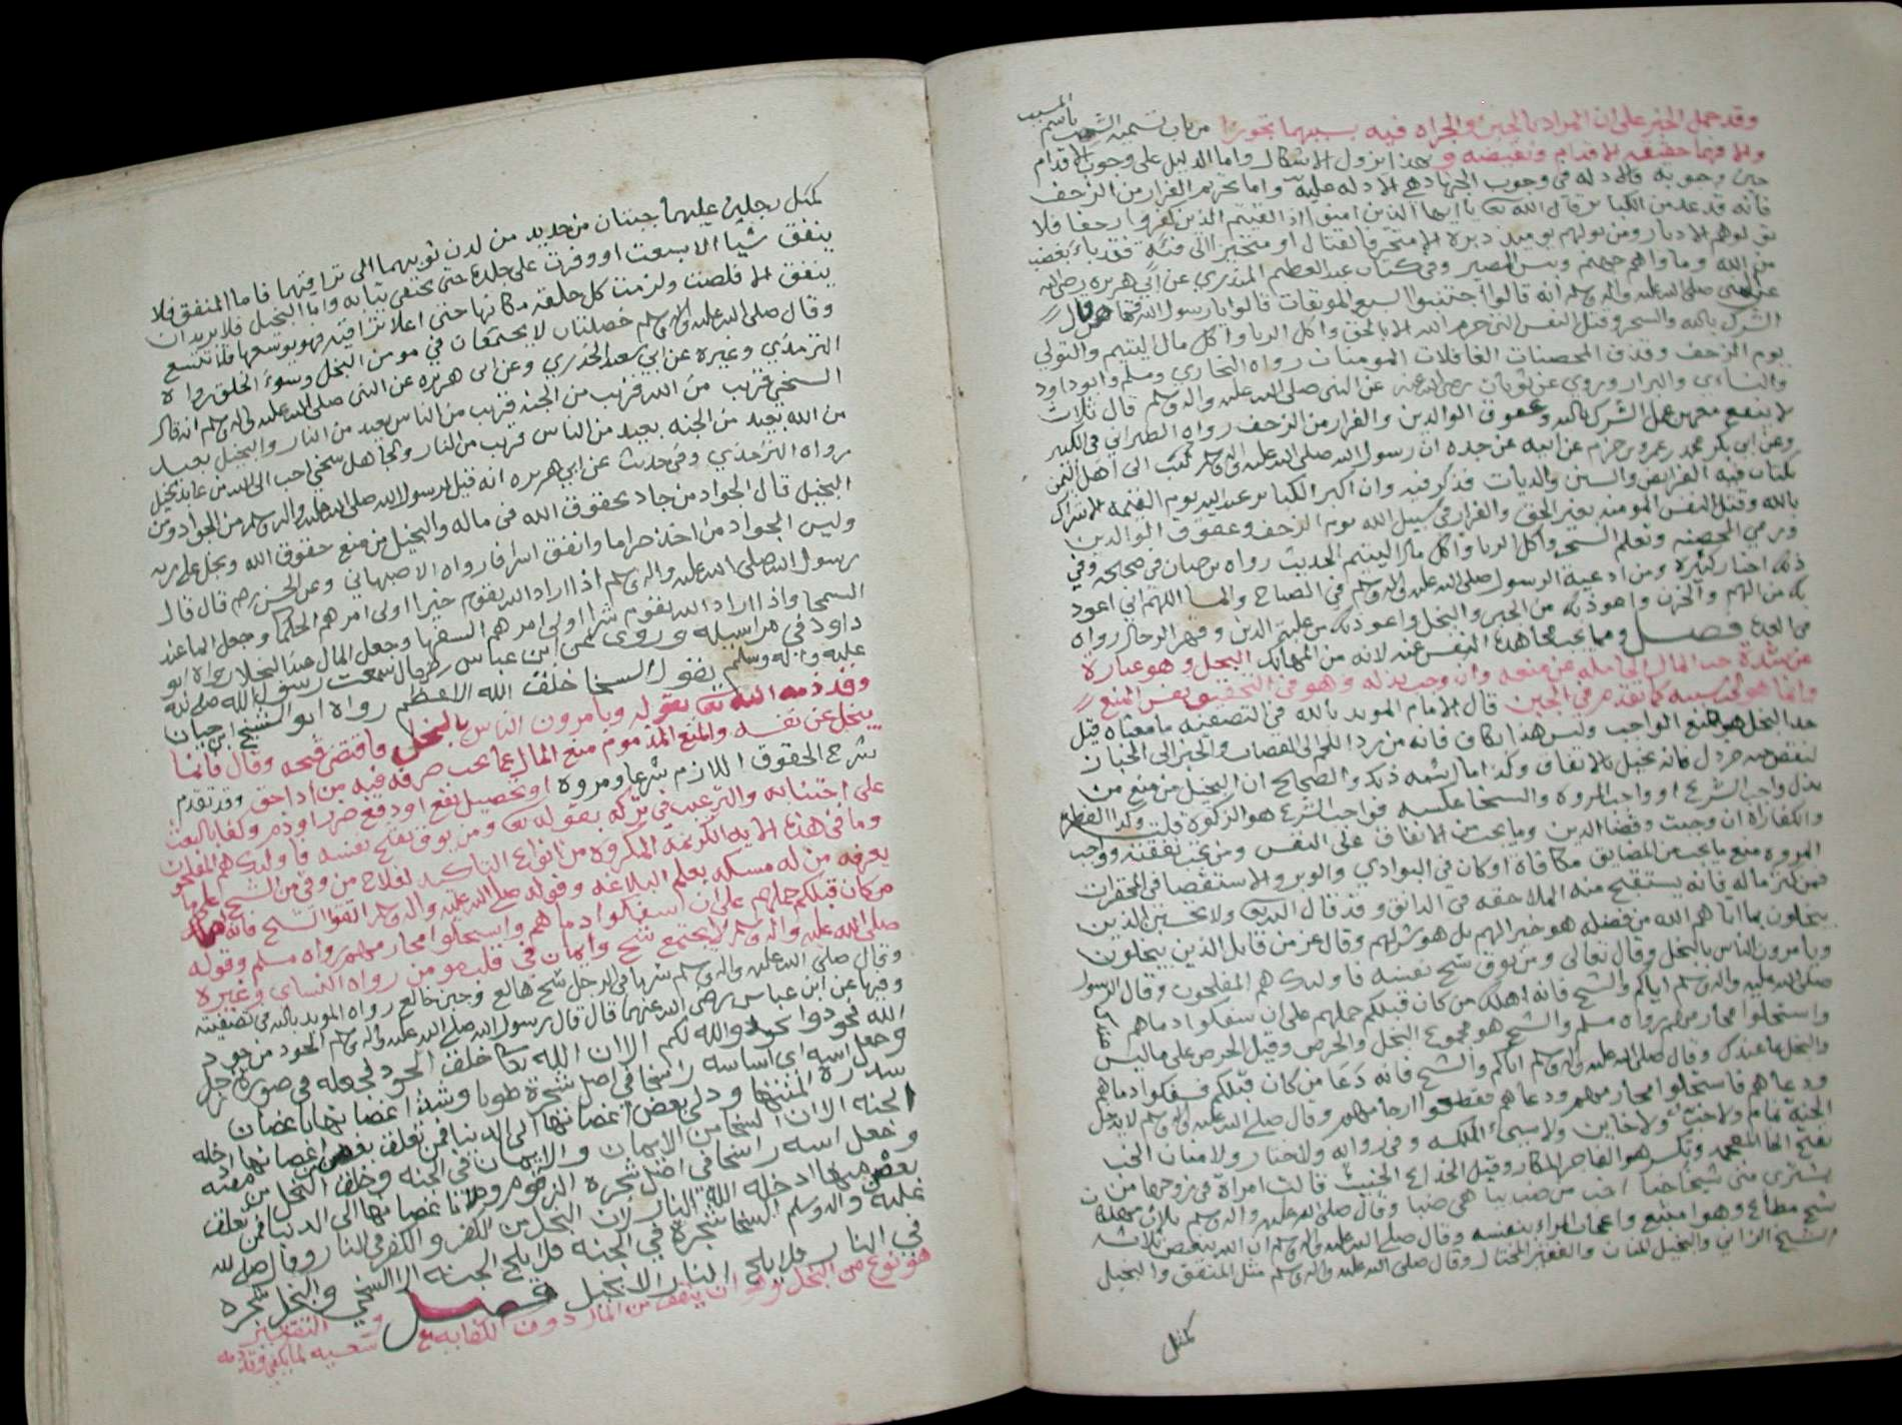 وقد حمل الخبر على ان المراد بالجبن والجراه فيه سببهما تجوزا من باب تسميه السبب باسم المسبب
والا فهما حقيقه الاقدام ونقيضه و بهذا يزول الاشكال واما الدليل على وجوب الاقدام
حين وجوبه فالادله في وجوب الجهاد هي الادله عليه واما تحريم الفرار من الزحف
فانه قد عد من الكبائر قال الله تعالى يا ايها الذين امنوا اذا لقيتم الذين كفروا زحفا فلا
تولوهم الادبار ومن يولهم يوميذ دبره الا متحرفا لقتال او متحيزا الى فئة فقد باء بغضب
من الله وماواه جهنم وبئس المصير وفي كتاب عبد العظيم المنذري عن ابي هريره رضي الله
عن النبي صلى الله عليه واله وسلم انه قال اجتنبوا السبع الموبقات قالوا يا رسول الله وما هن قال
الشرك بالله والسحر وقتل النفس التي حرم الله الا بالحق واكل الربا واكل مال اليتيم والتولي
يوم الزحف وقذف المحصنات الغافلات المومنات رواه البخاري ومسلم وابو داود
والنساءي والبزار وروي عن ثوبان رضي الله عنه عن النبي صلى الله عليه واله وسلم قال ثلاث
لا ينفع معهن عمل الشرك بالله وعقوق الوالدين والفرار من الزحف رواه الطبراني في الكبير
وعن ابي بكر محمد بن عمرو بن حزام عن ابيه عن جده ان رسول الله صلى الله عليه واله وسلم كتب الى اهل اليمن
بكتاب فيه الفرايض والسنن والديات فذكر فيه وان اكبر الكباير عند الله يوم القيمه الاشراك
بالله وقتل النفس المومنه بغير الحق والفرار في سبيل الله يوم الزحف وعقوق الوالدين
ورمي المحصنه وتعلم السحر واكل الربا واكل مال اليتيم الحديث رواه بن حبان في صحيحه وفي
ذلك اخبار كثيره ومن ادعية الرسول صلى الله عليه واله وسلم في الصباح والمسا اللهم اني اعوذ
بك من الهم والحزن واعوذ بك من الجبن والبخل واعوذ بك من غلبة الدين وقهر الرجال رواه
في العده فصل ومما يجب مجاهدة النفس عنه لانه من المهالك البخل وهو عبارة
عن شدة حب المال الحامله عن منعه وان وجب بذله وهو في التحقيق نفس المنع
وانما هو سببه كما تقدم في الجبن قال الامام المويد بالله في التصفيه ما معناه قيل
حد البخل هو منع الواجب وليس هذا بكاف فانه من يرد اللحم الى القصاب والخبز الى الخباز
لنقص حبة خردل فانه بخيل بالاتفاق وكذا ما اشبه ذلك والصحيح ان البخيل من منع من
بذل واجب الشرع او واجب المروه والسخا عكسه فواجب الشرع هو الزكوة قلت وكذا الفطره
والكفاراة ان وجبت وقضا الدين وما يجب من الانفاق على النفس ومن تجب نفقته وواجب
المروه منع ما يجب من المضايق مكافاة او كان في البوادي والوبر والاستقصا في المحقرات
فمن كثر ماله فانه يستقبح منه الملاحقه في الدانق وقد قال الله تعالى ولا يحسبن الذين
يبخلون بما اتاهم الله من فضله هو خيرا لهم بل هو شر لهم وقال عز من قايل الذين يبخلون
ويامرون الناس بالبخل وقال تعالى ومن يوق شح نفسه فاولئك هم المفلحون وقال الرسول
صلى الله عليه واله وسلم اياكم والشح فانه اهلك من كان قبلكم حملهم على ان سفكوا دماهم
واستحلوا محارمهم رواه مسلم والشح هو مجموع البخل والحرص وقيل الحرص على ما ليس عندك
والبخل بما عندك وقال صلى الله عليه واله وسلم اياكم والشح فانه دعا من كان قبلكم فسفكوا دماهم
ودعاهم فاستحلوا محارمهم ودعاهم فقطعوا ارحامهم وقال صلى الله عليه واله وسلم لا يدخل
الجنة نمام ولا خب ولا خاين ولا سيئ الملكه وفي روايه ولا جبار ولا منان الخب
بفتح الخا المعجمه وتكسر هو الفاجر المكار وقيل الخداع الخبيث قالت امراة في زوجها من
يشتري مني شيخا خبا اخب من ضب يباهي ضبا وقال صلى الله عليه واله وسلم ثلاث مهلكات
شح مطاع وهوا متبع واعجاب المرء بنفسه وقال صلى الله عليه واله وسلم ان الله يبغض ثلاثه
الشيخ الزاني والبخيل المنان والفقير المختال وقال صلى الله عليه واله وسلم مثل المنفق والبخيل
كمثل
كمثل رجلين عليهما جبتان من حديد من لدن ثديهما الى تراقيهما فاما المنفق فلا
ينفق شيا الا سبغت او وفرت على جلده حتى تخفي بنانه واما البخيل فلا يريد ان
ينفق الا قلصت ولزمت كل حلقه مكانها حتى اعلا تراقيه فهو يوسعها فلا تتسع
وقال صلى الله عليه واله وسلم خصلتان لا يجتمعان في مومن البخل وسوء الخلق رواه
الترمذي وغيره عن ابي سعيد الخدري وعن ابي هريره عن النبي صلى الله عليه واله وسلم انه قال
السخي قريب من الله قريب من الجنه قريب من الناس بعيد من النار والبخيل بعيد
من الله بعيد من الجنه بعيد من الناس قريب من النار ولجاهل سخي احب الى الله من عابد بخيل
رواه الترمذي وفي حديث عن ابي هريره انه قيل لرسول الله صلى الله عليه واله وسلم من الجواد ومن
البخيل قال الجواد من جاد بحقوق الله في ماله والبخيل من منع حقوق الله وبخل على ربه
وليس الجواد من اخذ حراما وانفق اسرافا رواه الاصبهاني وعن الحسن قال قال
رسول الله صلى الله عليه واله وسلم اذا اراد الله بقوم خيرا اولى امرهم الحلما وجعل المال عند
السمحا واذا اراد الله بقوم شرا اولى امرهم السفها وجعل المال عند البخلا رواه ابو
داود في مراسيله وروى عن ابن عباس قال سمعت رسول الله صلى الله
عليه واله وسلم يقول السخا خلق الله الاعظم رواه ابو الشيخ ابن حبان
وقد ذمه الله تعالى بقوله ويامرون الناس بالبخل فاقتضى قبحه وقال فانما
يبخل عن نفسه والمنع المذموم منع المال عما يجب صرفه فيه من اداحق وقد تقدم
شرح الحقوق اللازم شرعا ومروه او تحصيل نفع او دفع ضرر او ذم وكفا بالبعث
على اجتنابه والترغيب في تركه بقوله تعالى ومن يوق شح نفسه فاولئك هم المفلحون
وما في هذه الايه الكريمة المكروه من انواع التاكيد لفلاح من وقي من الشح على ما
يعرفه من له مسكه بعلم البلاغه وقوله صلى الله عليه واله وسلم اتقوا الشح فانه اهلك
من كان قبلكم حملهم على ان سفكوا دماهم واستحلوا محارمهم رواه مسلم وقوله
صلى الله عليه واله وسلم لا يجتمع شح وايمان في قلب مومن رواه النساي وغيره
وقال صلى الله عليه واله وسلم شر ما في الرجل شح هالع وجبن خالع رواه المويد بالله في تصفيته
وفيها عن ابن عباس رضي الله عنهما قال قال رسول الله صلى الله عليه واله وسلم الجود من جود
الله فجودوا يجود الله لكم الا ان الله تعالى خلق الجود فجعله في صورة رجل
وجعل اسه اي اساسه راسخا في اصل شجرة طوبا وشد اغصانها باغصان
سدرة المنتهى ودلى بعض اغصانها الى الدنيا فمن تعلق بغصن من اغصانها ادخله
الجنه الا ان السخا من الايمان والايمان في الجنه وخلق البخل من مقته
وجعل اسه راسخا في اصل شجره الزقوم ودلا اغصانها الى الدنيا فمن تعلق
بغصن منها ادخله الله النار لان البخل من الكفر والكفر في النار وقال صلى الله
عليه واله وسلم السخا شجرة في الجنه فلا يلج الجنه الا السخي والبخل شجره
في النار فلا يلج النار الا بخيل فصل و التقتير
هو نوع من البخل وهو ان ينفق من المال دون الكفايه مع